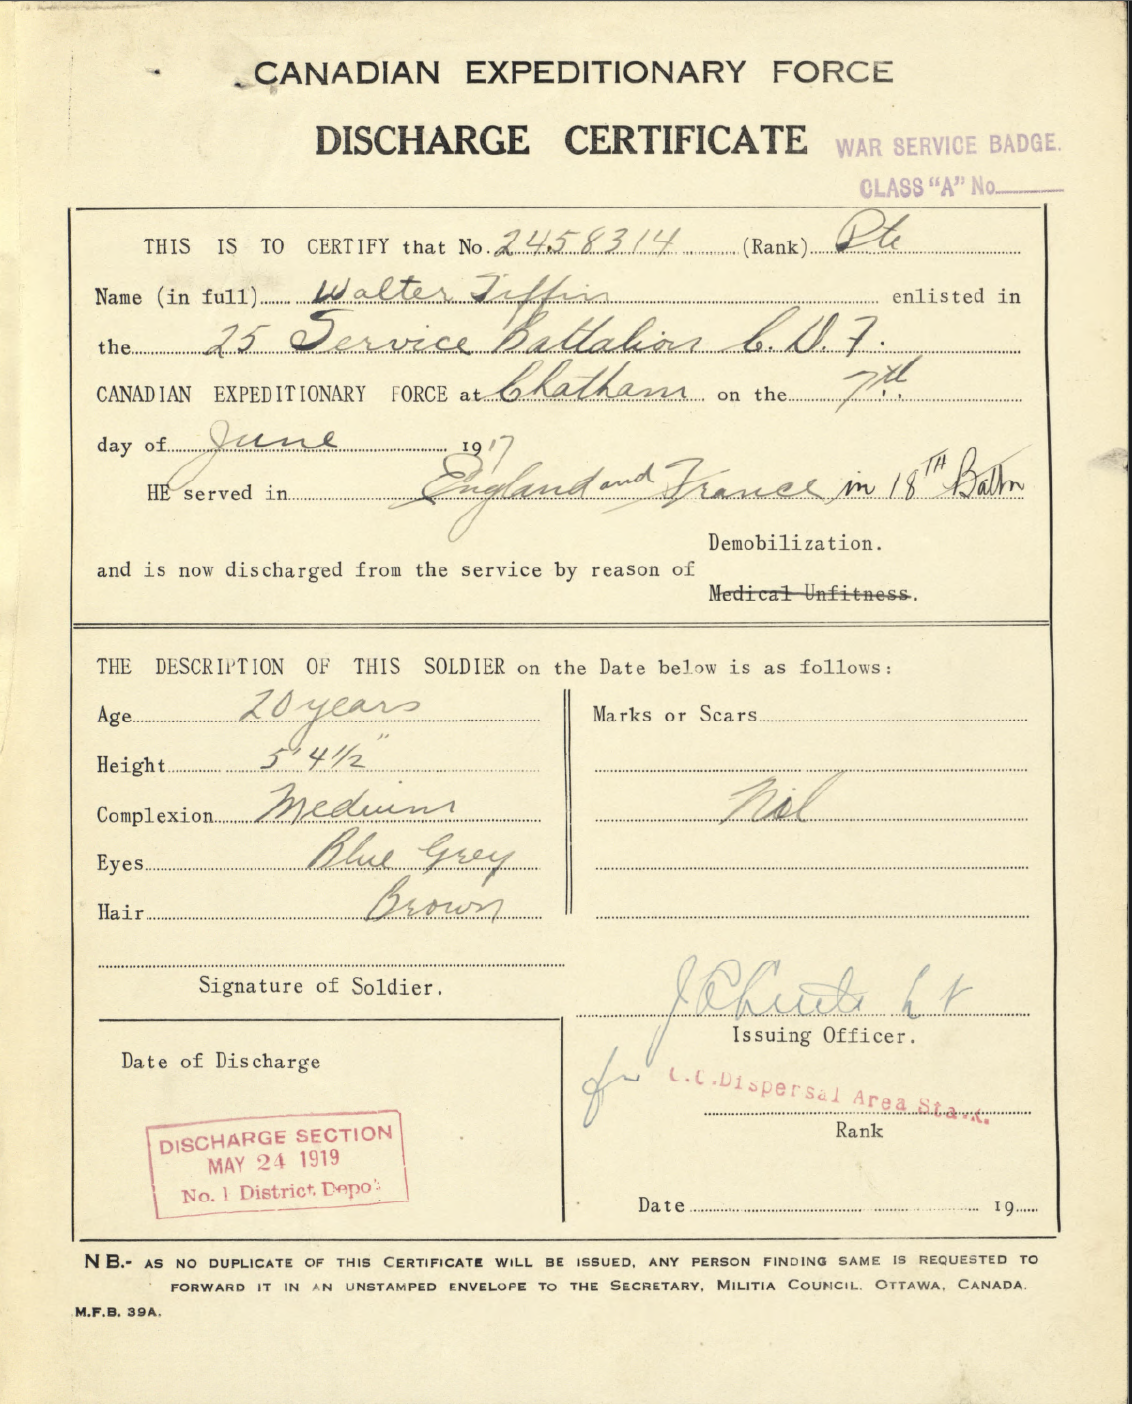 CANADIAN EXPEDITIONARY FORCE
DISCHARGE CERTIFICATE
WAR SERVICE BADGE.
CLASS "A" No.
THIS IS TO CERTIFY that No. 2458314 (Rank) Pte
Name (in full) Walter Tiffin enlisted in
the 25 Service Battalion C.D.F.
CANADIAN EXPEDITIONARY FORCE at Chatham on the 7th
day of June 1917
HE served in England and France in 18TH Battn
Demobilization.
and is now discharged from the service by reason of
Medical Unfitness.
THE DESCRIPTION OF THIS SOLDIER on the Date below is as follows:
Age 20 years
Marks or Scars
Height 5' 4½"
Complexion Medium
Nil
Eyes Blue Grey
Hair Brown
Signature of Soldier.
Lt
Issuing Officer.
Date of Discharge
for O.C. Dispersal Area Sta.
Rank
DISCHARGE SECTION
MAY 24 1919
No. 1 District Depot
Date 19
NB.- AS NO DUPLICATE OF THIS CERTIFICATE WILL BE ISSUED, ANY PERSON FINDING SAME IS REQUESTED TO
FORWARD IT IN AN UNSTAMPED ENVELOPE TO THE SECRETARY, MILITIA COUNCIL, OTTAWA, CANADA.
M.F.B. 39A.